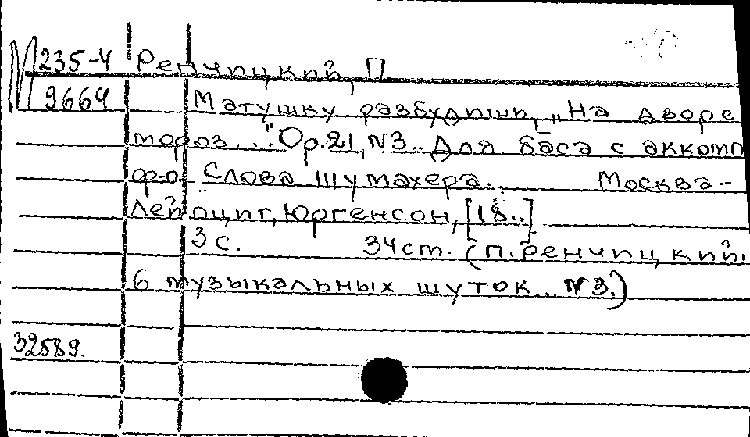 М 235-4 Ренчицкий, П
9664 Матушку разбудишь, "На дворе
мороз..." Op.21, N3. Для баса с аккомп
ф-о. Слова Шумахера. Москва-
Лейпциг, Юргенсон, [18..]
3 с. 34 ст. (П. Ренчицкий.
6 музыкальных шуток. N 3.)
32589.